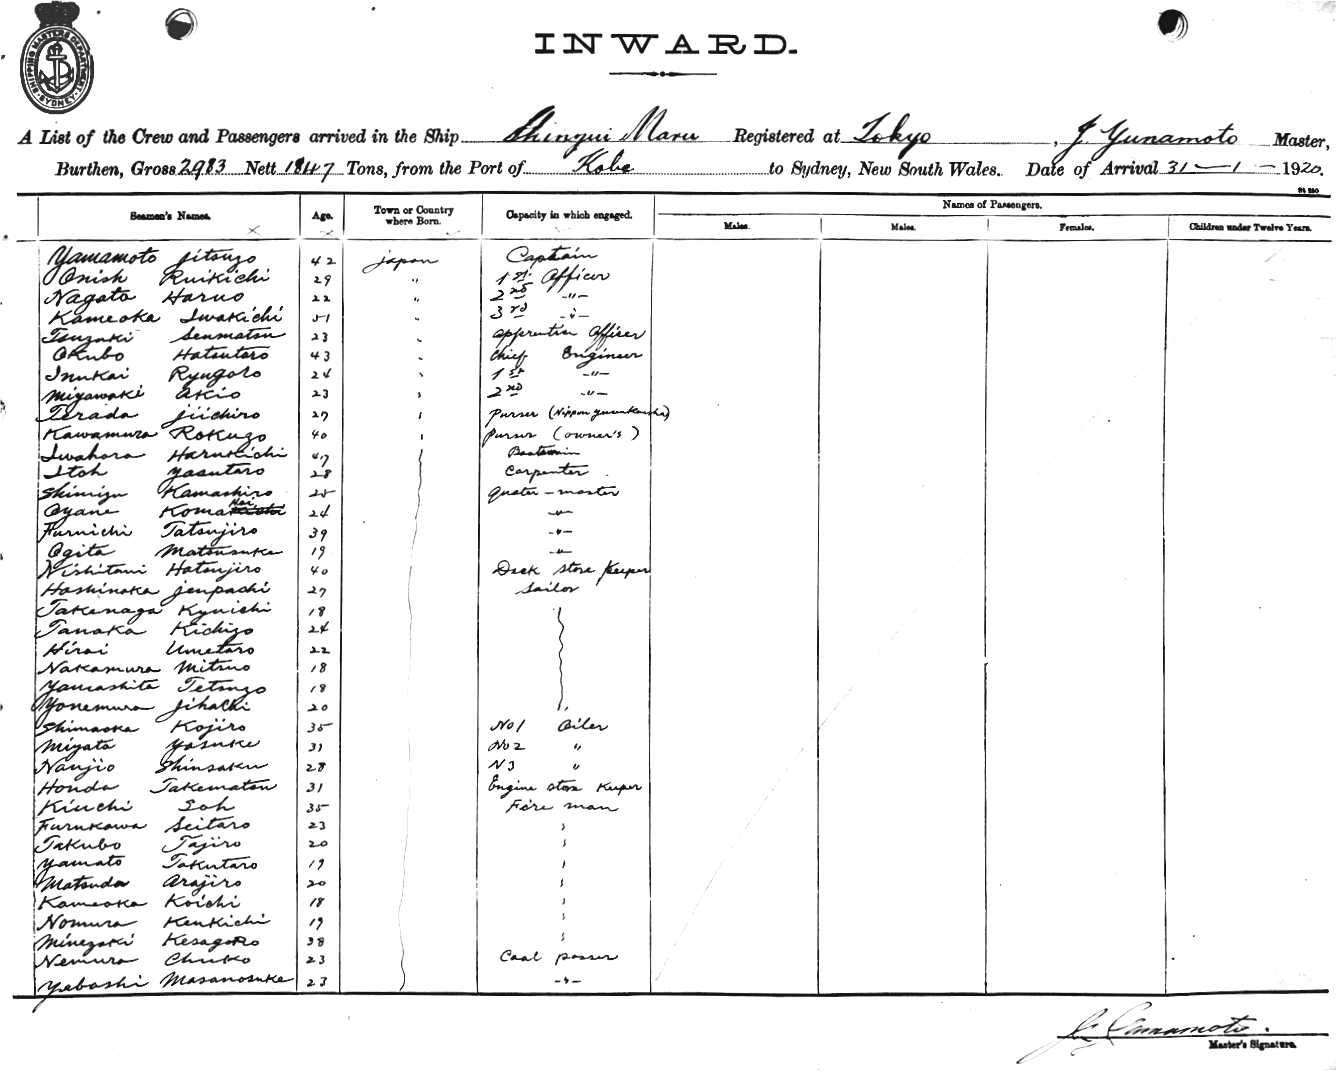 SHIPPING MASTERS DEPARTMENT
SYDNEY
INWARD.
A List of the Crew and Passengers arrived in the Ship Shingui Maru Registered at Tokyo, J. Yunamoto Master,
Burthen, Gross 2983 Nett 1847 Tons, from the Port of Kobe to Sydney, New South Wales. Date of Arrival 31-1-1920.
Seamen's Names. Age. Town or Country where Born. Capacity in which engaged. Names of Passengers.
Males. Males. Females. Children under Twelve Years.
Yamamoto Jitsuzo 42 Japan Captain
Onish Ruikichi 29 " 1st Officer
Nagata Haruo 22 " 2nd -"-
Kameoka Iwakichi 51 " 3rd -"-
Tsuzaki Senmatsu 23 " apprentice Officer
Okubo Hatsutaro 43 " Chief Engineer
Inukai Ryugoro 24 " 1st -"-
Miyawaki Akio 23 " 2nd -"-
Terada Jiichiro 27 " Purser (Nippon Yusenkaisha)
Kawamura Rokuzo 40 " Purser (owner's)
Iwahara Harukichi 47 Boatswain
Itoh Yasutaro 28 Carpenter
Shimizu Kamashiro 25 Quater-master
Oyane Koma 24 -"-
Furuichi Tatsujiro 39 -"-
Ogita Matsusuke 19 -"-
Nishitani Hatsujiro 40 Deck store Keeper
Hashinaka Jenpachi 27 Sailor
Takenaga Kyuichi 18
Tanaka Kichizo 24
Hirai Umetaro 22
Nakamura Mitsuo 18
Yamashita Tetsuzo 18
Yonemura Jihachi 20 "
Shimaoka Kojiro 35 No1 Oiler
Miyata Yasuke 31 No2 "
Nanjio Shinsaku 28 N3 "
Honda Takematsu 31 Engine store Keeper
Kiuchi Soh 35 Fire man
Furukawa Seitaro 23 "
Takubo Tajiro 20 "
Yamato Takutaro 19 "
Matsuda Arajiro 20 "
Kameoka Koichi 18 "
Nomura Kenkichi 19 "
Minezaki Kesagoro 38 "
Nemura Chuko 23 Coal passer
Yabashi Masanosuke 23 -"-
J. Yamamoto.
Master's Signature.